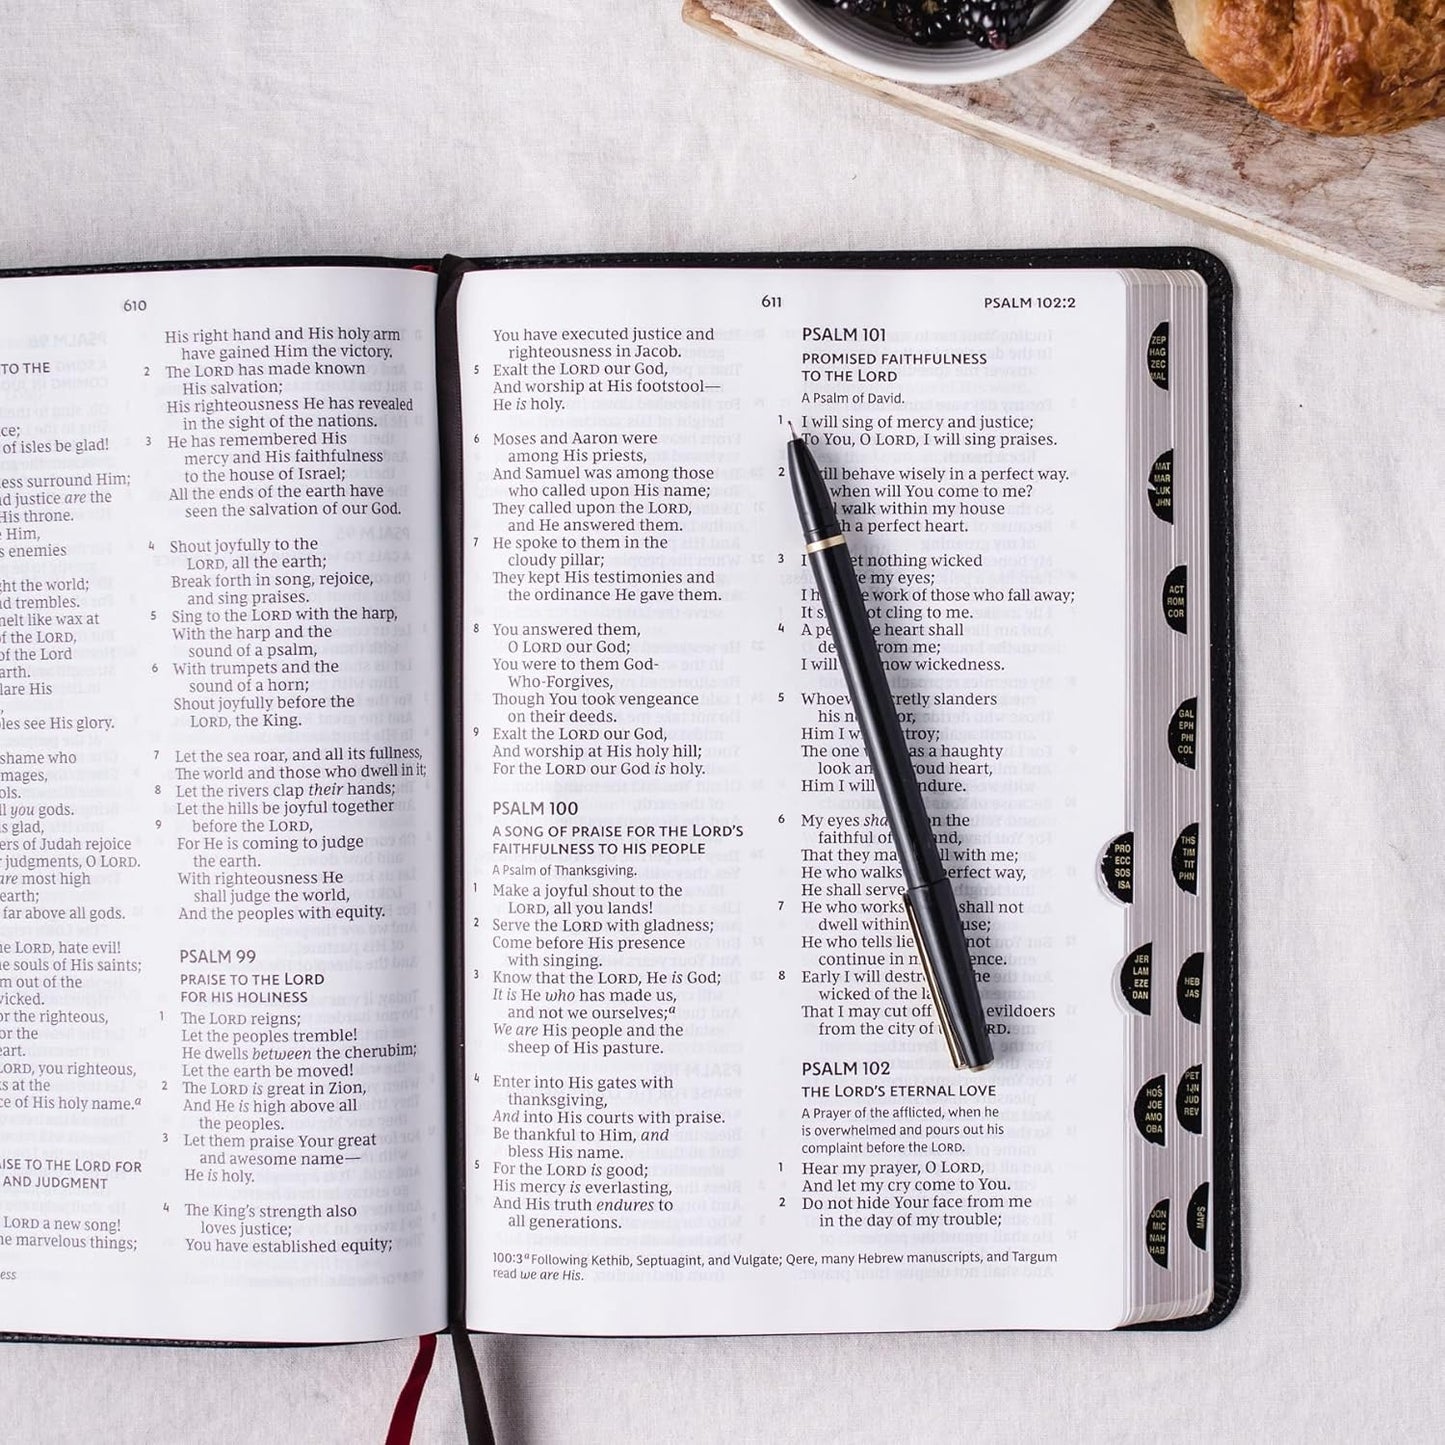 610
TO THE
ce;
of isles be glad!
ess surround Him;
d justice are the
His throne.
Him,
s enemies
ght the world;
d trembles.
melt like wax at
of the LORD,
of the Lord
arth.
lare His
les see His glory.
shame who
mages,
ols.
ll you gods.
s glad,
ers of Judah rejoice
r judgments, O LORD.
are most high
earth;
far above all gods.
e LORD, hate evil!
e souls of His saints;
m out of the
vicked.
or the righteous,
or the
eart.
LORD, you righteous,
ks at the
ce of His holy name.a
ISE TO THE LORD FOR
AND JUDGMENT
LORD a new song!
ne marvelous things;
ess
His right hand and His holy arm
have gained Him the victory.
2 The LORD has made known
His salvation;
His righteousness He has revealed
in the sight of the nations.
3 He has remembered His
mercy and His faithfulness
to the house of Israel;
All the ends of the earth have
seen the salvation of our God.
4 Shout joyfully to the
LORD, all the earth;
Break forth in song, rejoice,
and sing praises.
5 Sing to the LORD with the harp,
With the harp and the
sound of a psalm,
6 With trumpets and the
sound of a horn;
Shout joyfully before the
LORD, the King.
7 Let the sea roar, and all its fullness,
The world and those who dwell in it;
8 Let the rivers clap their hands;
Let the hills be joyful together
9 before the LORD,
For He is coming to judge
the earth.
With righteousness He
shall judge the world,
And the peoples with equity.
PSALM 99
PRAISE TO THE LORD
FOR HIS HOLINESS
1 The LORD reigns;
Let the peoples tremble!
He dwells between the cherubim;
Let the earth be moved!
2 The LORD is great in Zion,
And He is high above all
the peoples.
3 Let them praise Your great
and awesome name—
He is holy.
4 The King's strength also
loves justice;
You have established equity;
611
PSALM 102:2
You have executed justice and
righteousness in Jacob.
5 Exalt the LORD our God,
And worship at His footstool—
He is holy.
6 Moses and Aaron were
among His priests,
And Samuel was among those
who called upon His name;
They called upon the LORD,
and He answered them.
7 He spoke to them in the
cloudy pillar;
They kept His testimonies and
the ordinance He gave them.
8 You answered them,
O LORD our God;
You were to them God-
Who-Forgives,
Though You took vengeance
on their deeds.
9 Exalt the LORD our God,
And worship at His holy hill;
For the LORD our God is holy.
PSALM 100
A SONG OF PRAISE FOR THE LORD'S
FAITHFULNESS TO HIS PEOPLE
A Psalm of Thanksgiving.
1 Make a joyful shout to the
LORD, all you lands!
2 Serve the LORD with gladness;
Come before His presence
with singing.
3 Know that the LORD, He is God;
It is He who has made us,
and not we ourselves;a
We are His people and the
sheep of His pasture.
4 Enter into His gates with
thanksgiving,
And into His courts with praise.
Be thankful to Him, and
bless His name.
5 For the LORD is good;
His mercy is everlasting,
And His truth endures to
all generations.
PSALM 101
PROMISED FAITHFULNESS
TO THE LORD
A Psalm of David.
1 I will sing of mercy and justice;
To You, O LORD, I will sing praises.
2 will behave wisely in a perfect way.
when will You come to me?
walk within my house
a perfect heart.
3 I nothing wicked
my eyes;
I work of those who fall away;
It cling to me.
4 A heart shall
from me;
I will wickedness.
5 slanders
his
Him I
The one as a haughty
look heart,
Him I will
6 My eyes on the
faithful of
That they with me;
He who walks perfect way,
He shall serve
7 He who works shall not
dwell within
He who tells not
continue in
8 Early I will the
wicked of the
That I may cut off evildoers
from the city of
PSALM 102
THE LORD'S ETERNAL LOVE
A Prayer of the afflicted, when he
is overwhelmed and pours out his
complaint before the LORD.
1 Hear my prayer, O LORD,
And let my cry come to You.
2 Do not hide Your face from me
in the day of my trouble;
100:3 a Following Kethib, Septuagint, and Vulgate; Qere, many Hebrew manuscripts, and Targum
read we are His.
ZEP
HAG
ZEC
MAL
MAT
MAR
LUK
JHN
ACT
ROM
COR
GAL
EPH
PHI
COL
PRO
ECC
SOS
ISA
THS
TIM
TIT
PHN
JER
LAM
EZE
DAN
HEB
JAS
HOS
JOE
AMO
OBA
PET
1JN
JUD
REV
JON
MIC
NAH
HAB
MAPS